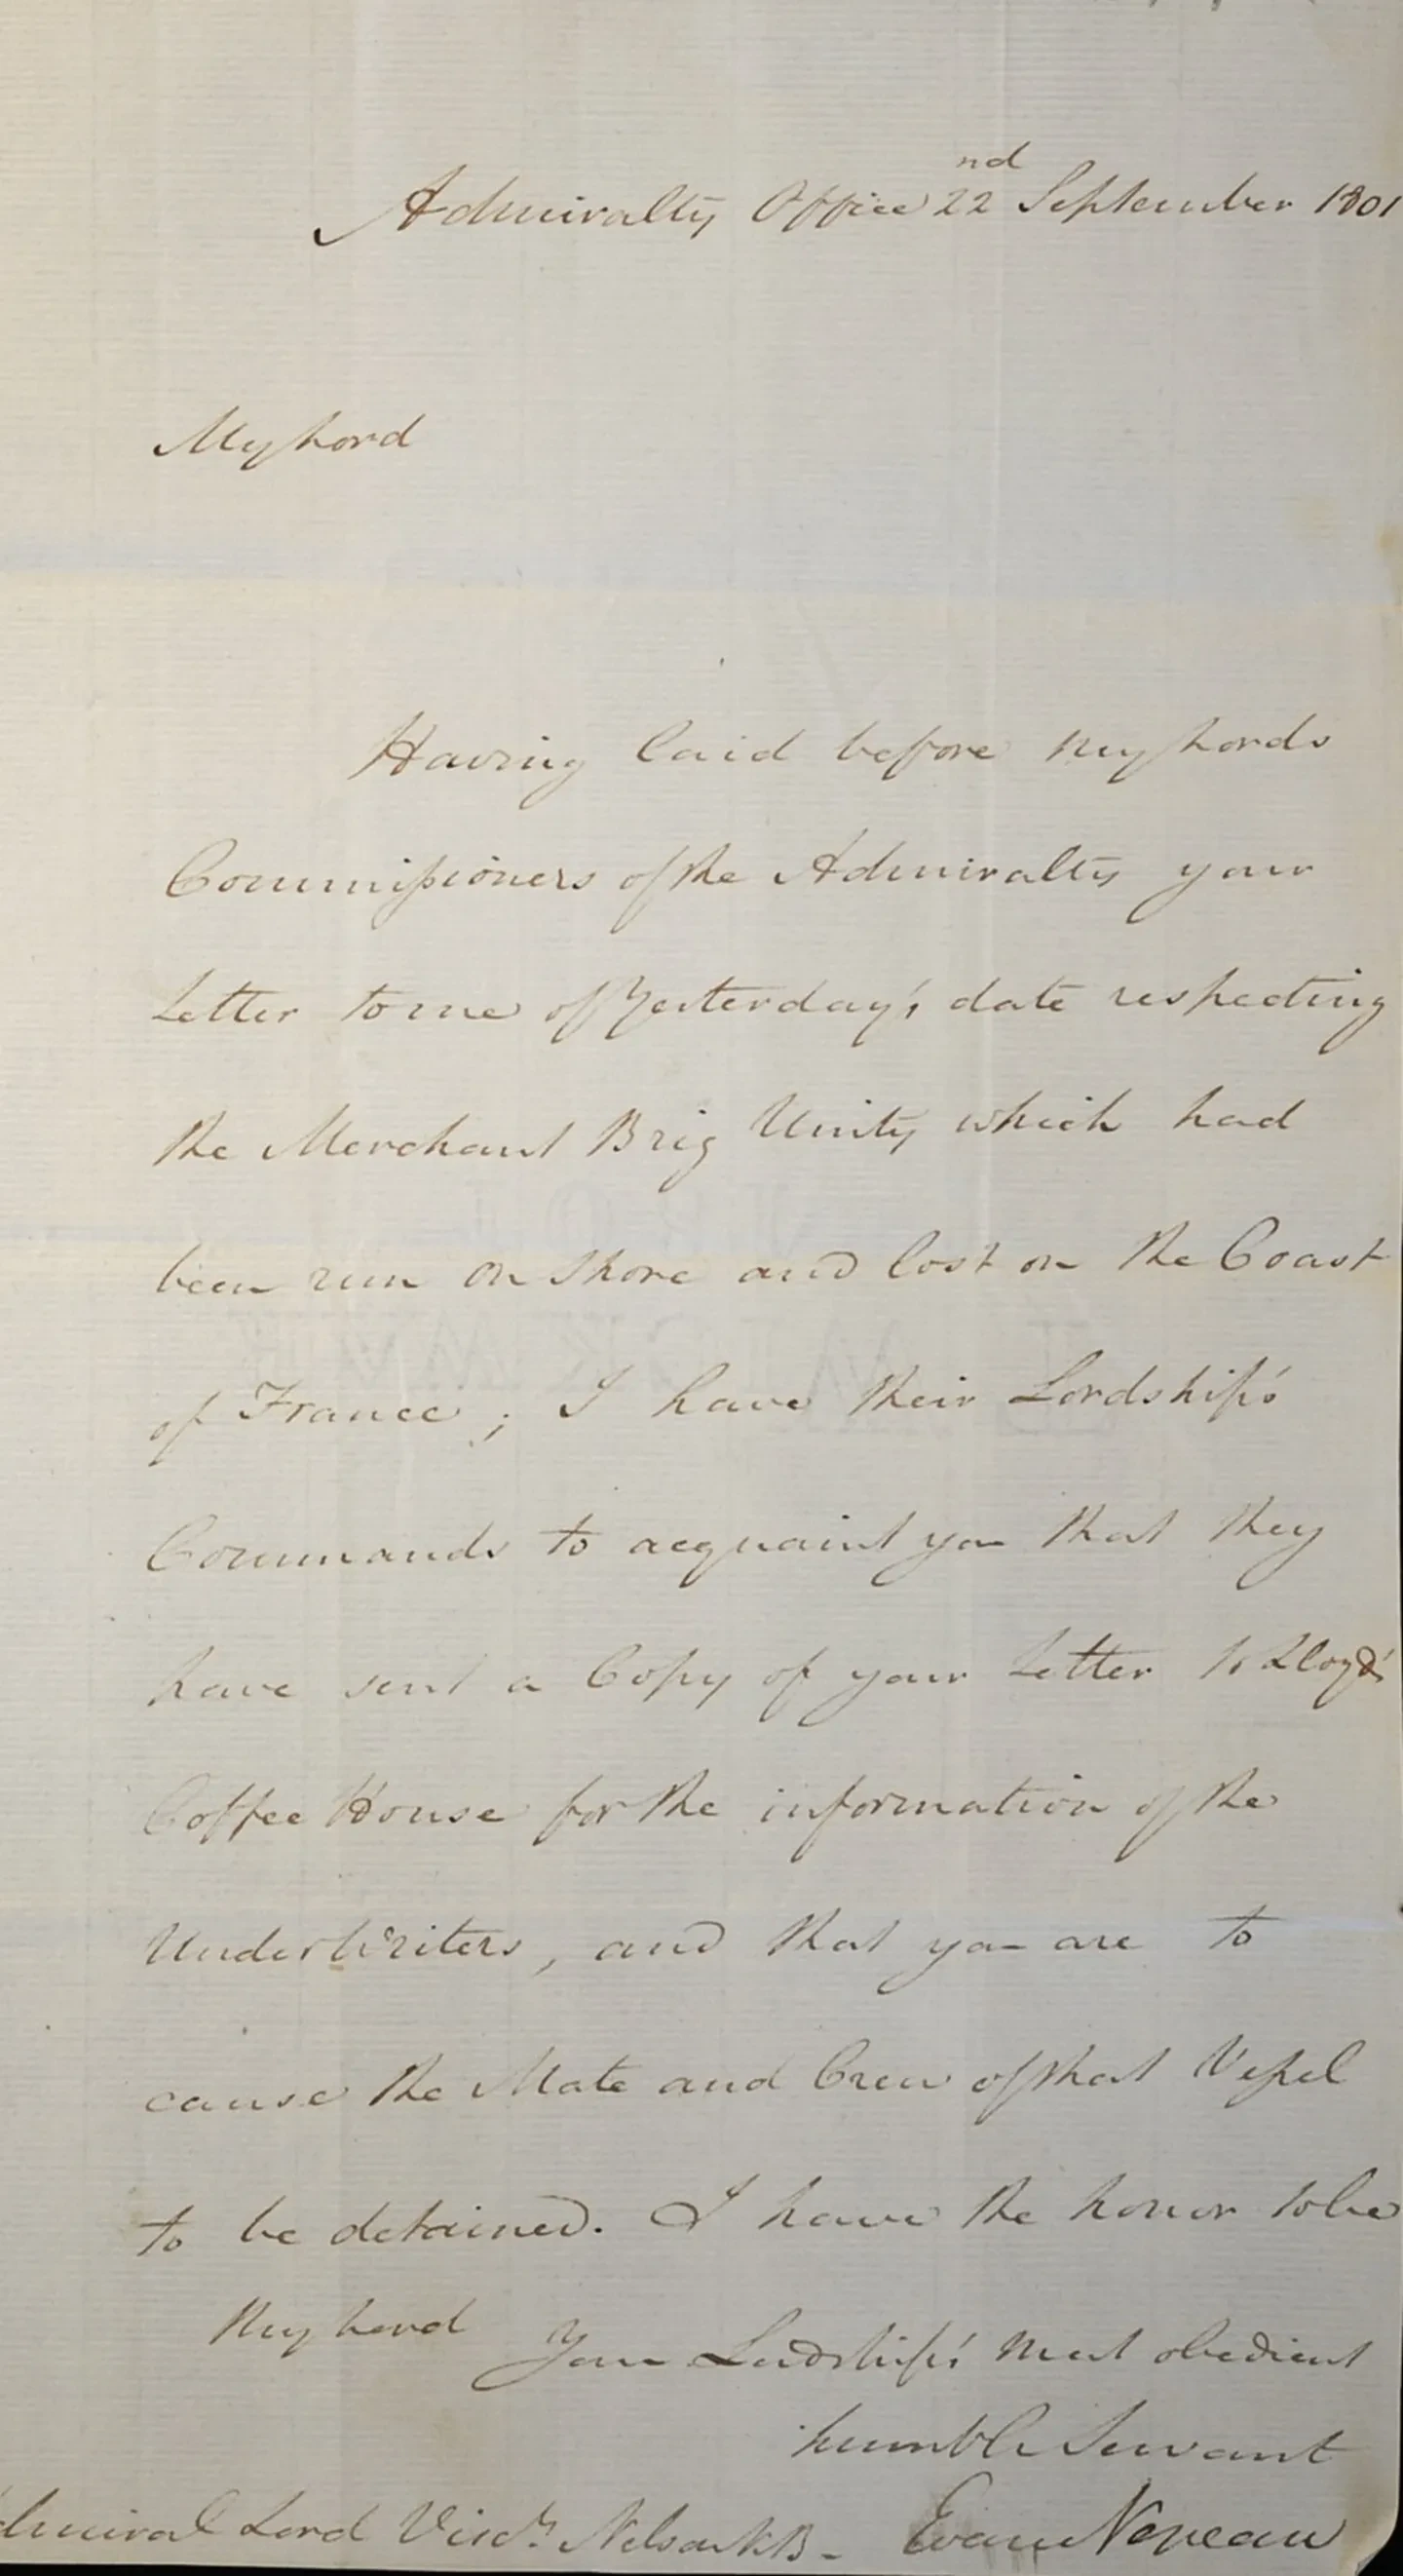 Admiralty Office 22nd September 1801
My Lord
Having laid before my Lords
Commissioners of the Admiralty your
Letter to me of Yesterday's date respecting
the Merchant Brig Unity which had
been run on Shore and lost on the Coast
of France; I have their Lordship's
Commands to acquaint you that they
have sent a Copy of your Letter to Lloyd's
Coffee House for the information of the
UnderWriters, and that you are to
cause the Mate and Crew of that Vessel
to be detained. I have the honor to be
My Lord Your Lordship's most obedient
humble Servant
Admiral Lord Visct. Nelson KB. Evan Nepean